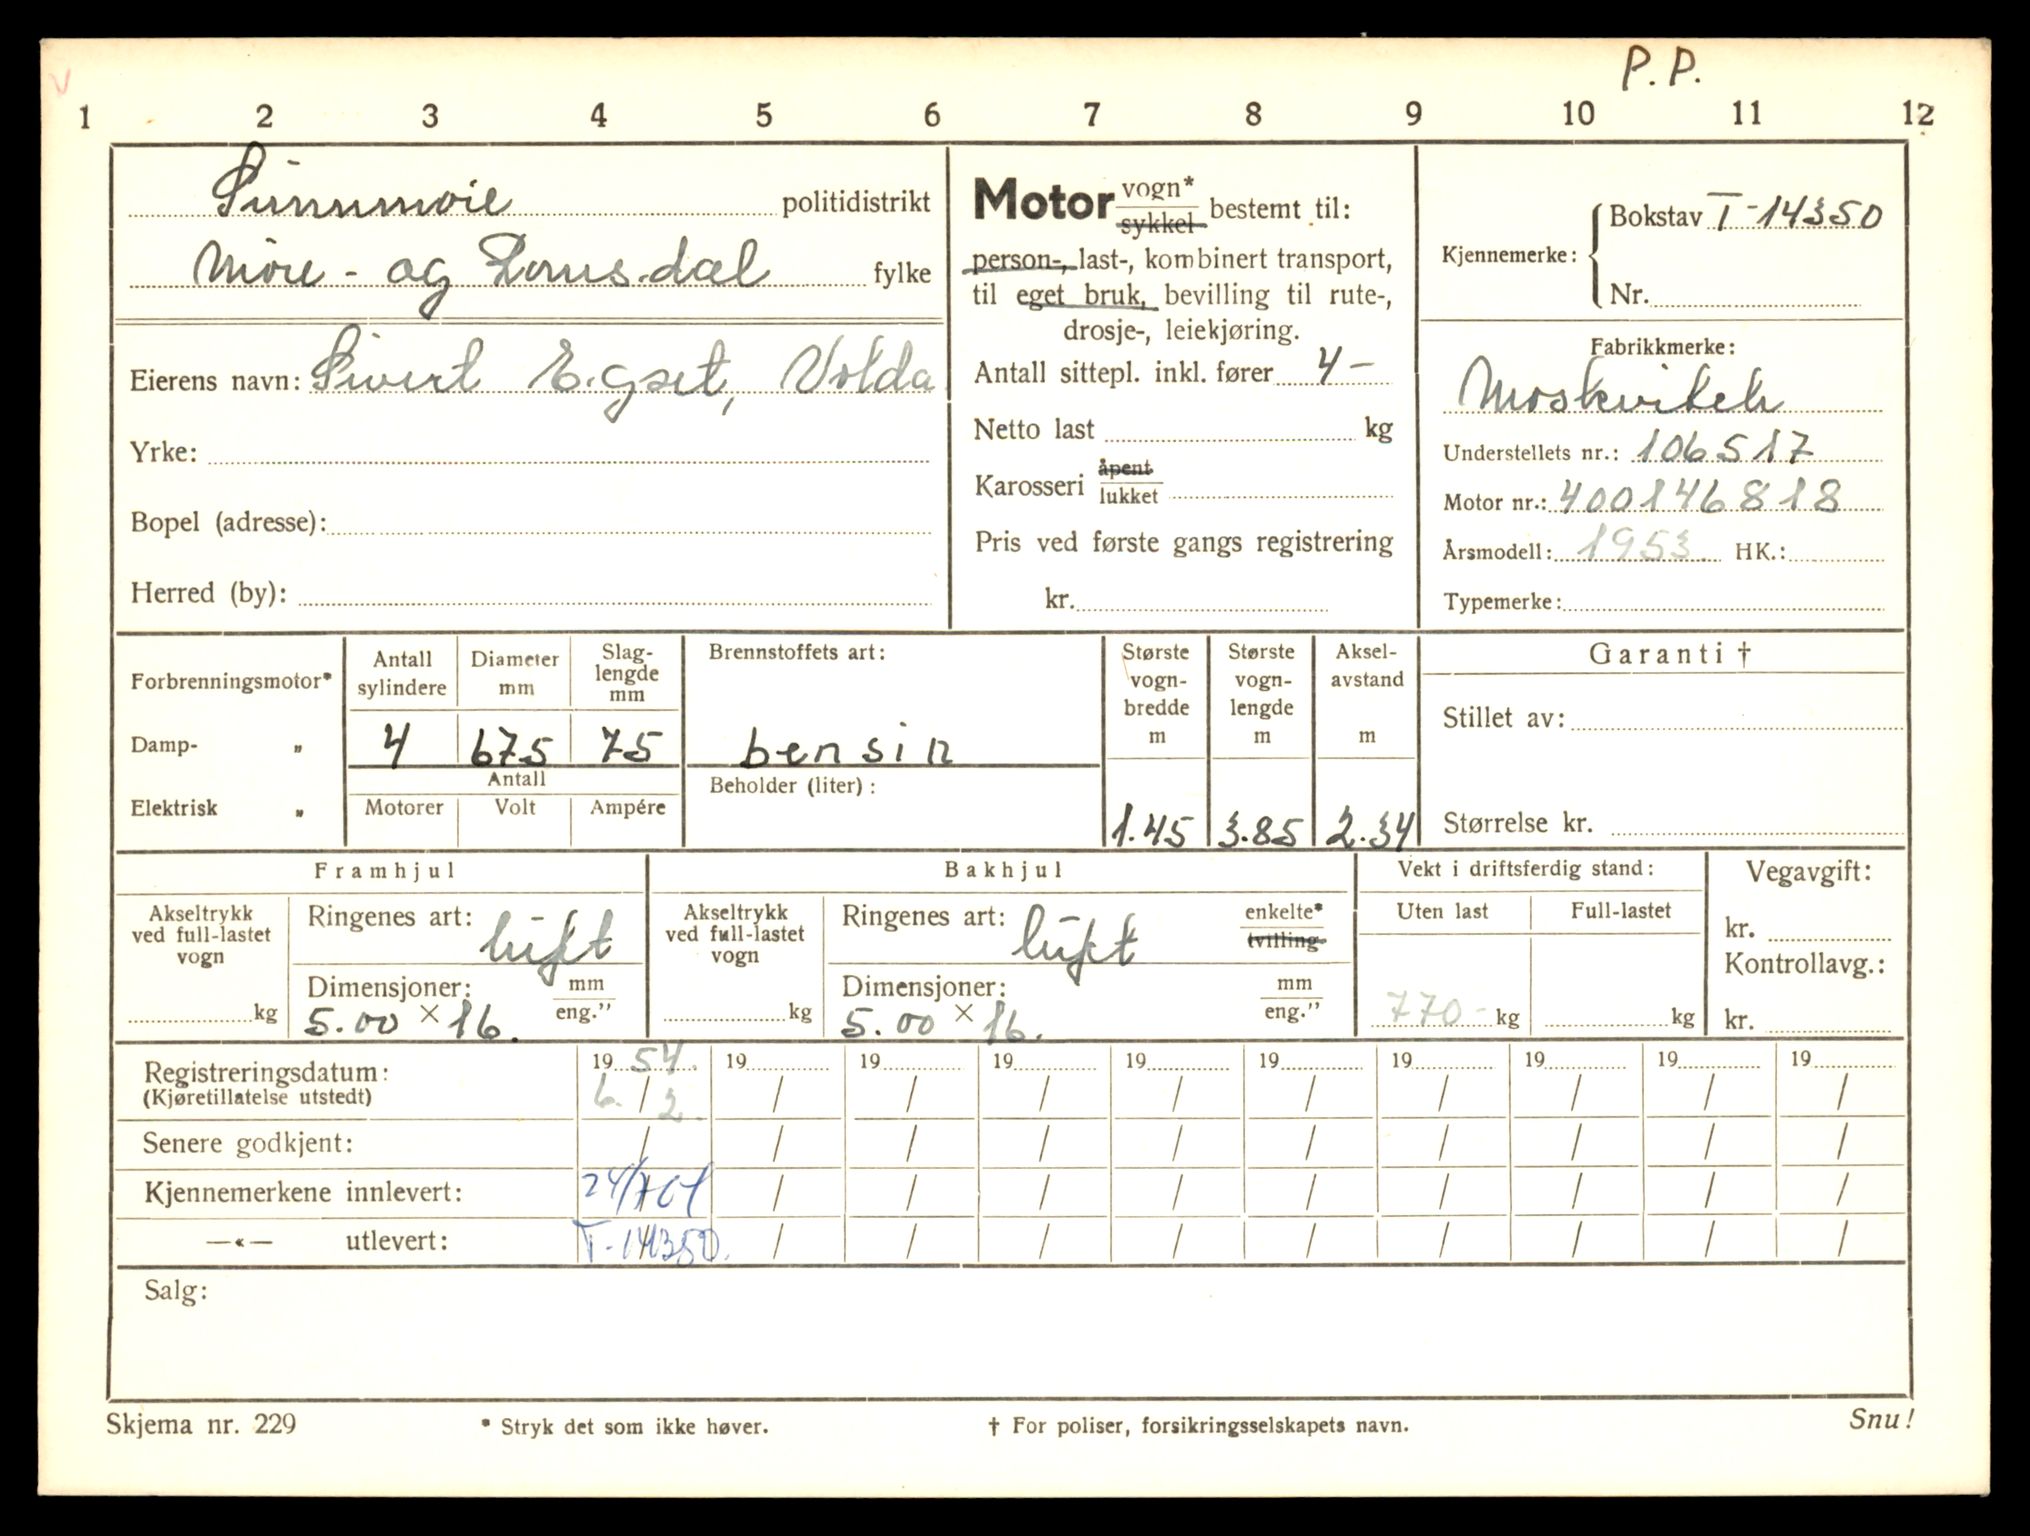 P. P.
1 2 3 4 5 6 7 8 9 10 11 12
Sunnmøre politidistrikt
Møre- og Romsdal fylke
Eierens navn: Sivert E. gset, Volda
Yrke:
Bopel (adresse):
Herred (by):
Motor vogn* / sykkel bestemt til:
person-, last-, kombinert transport,
til eget bruk, bevilling til rute-,
drosje-, leiekjøring.
Antall sittepl. inkl. fører 4 -
Netto last kg
Karosseri åpent / lukket
Pris ved første gangs registrering
kr.
Kjennemerke: Bokstav T-14350
Nr.
Fabrikkmerke:
Moskvitch
Understellets nr.: 106517
Motor nr.: 400146818
Årsmodell: 1953. HK.:
Typemerke:
Forbrenningsmotor*
Damp- „
Elektrisk „
Antall sylindere
Diameter mm
Slag-lengde mm
4 675 75
Antall
Motorer Volt Ampére
Brennstoffets art:
bensin
Beholder (liter):
Største vogn-bredde m
1.45
Største vogn-lengde m
3.85
Aksel-avstand m
2.34
Garanti †
Stillet av:
Størrelse kr.
Framhjul
Akseltrykk ved full-lastet vogn
kg
Ringenes art: luft
Dimensjoner: mm / eng."
5.00 × 16.
Bakhjul
Akseltrykk ved full-lastet vogn
kg
Ringenes art: luft enkelte* / tvilling-
Dimensjoner: mm / eng."
5.00 × 16.
Vekt i driftsferdig stand:
Uten last Full-lastet
770- kg kg
Vegavgift:
kr.
Kontrollavg.:
kr.
Registreringsdatum: 19 54. 19 19 19 19 19 19 19 19 19
(Kjøretillatelse utstedt) 6. / 2. / / / / / / / / /
Senere godkjent: / / / / / / / / / /
Kjennemerkene innlevert: 24/7 61 / / / / / / / / /
—«— utlevert: T-14350. / / / / / / / / /
Salg:
Skjema nr. 229
* Stryk det som ikke høver.
† For poliser, forsikringsselskapets navn.
Snu!